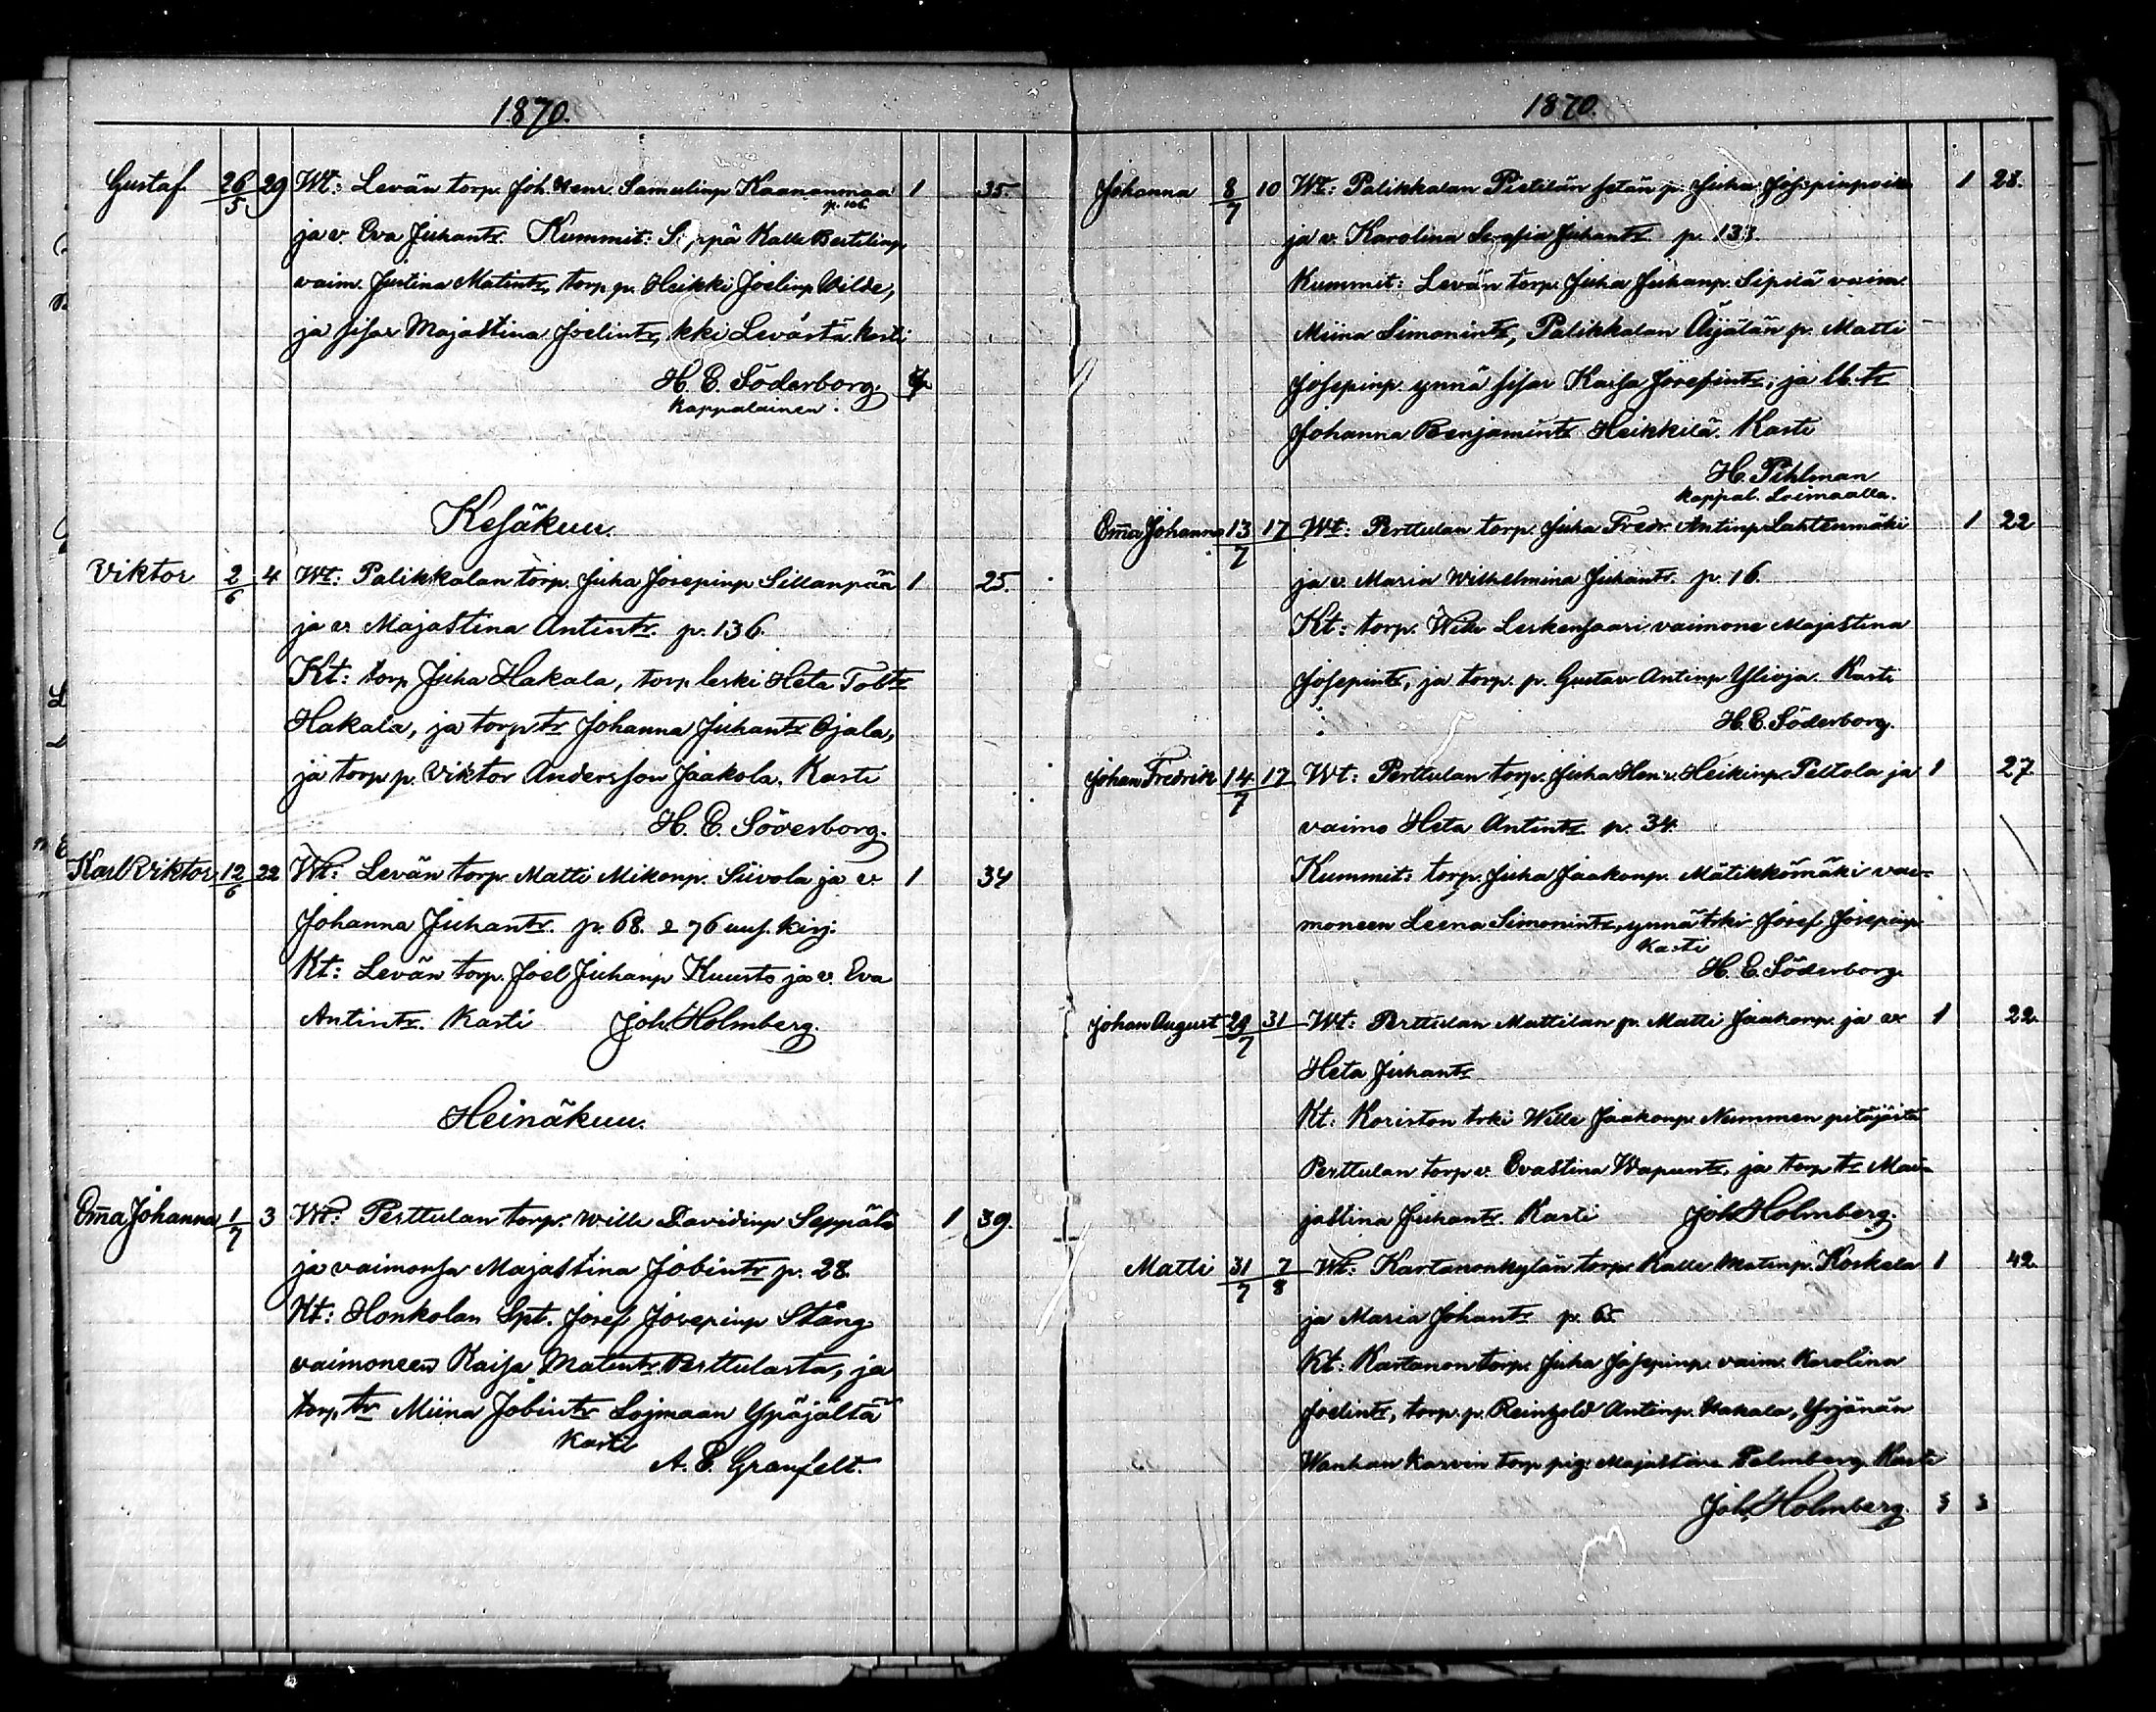 1870.
Gustaf 26/5 29 Wt: Levän torp. Joh. Henr. Samulinp Kaananmaa 1 35.
ja v. Eva Juhantr. Kummit: Seppä Kalle Bertilinp
vaim. Justina Matintr, torp. p. Heikki Joelinp Wilde,
ja sisar Majastina Joelintr, kki Levästä. Kasti
H. E. Söderborg.
kappalainen.
Kesäkuu.
Viktor 2/6 4 Wt: Palikkalan torp. Juha Josepinp Sillanpää 1 25.
ja v. Majastina Antintr. p. 136.
Kt: torp Juha Hakala, torp. leski Heta Tobtr
Hakala, ja torp tr Johanna Juhantr Ojala,
ja torp. p. Viktor Andersson Jaakola. Kasti
H. E. Söverborg.
Karl Viktor 12/6 22 Wt: Levän torp. Matti Mikonp. Siivola ja v. 1 34
Johanna Juhantr. p. 68. 2 76 uus. kirj.
Kt: Levän torp. Joel Juhanp Kuusto ja v. Eva
Antintr. Kasti Joh. Holmberg.
Heinäkuu.
Em̅a Johanna 1/7 3 Wt: Perttulan torp. Wille Davidinp Seppälä 1 39.
ja vaimonsa Majastina Jobintr p. 28.
Kt: Honkolan Spt. Josef Josepinp Stång
vaimoneen Kaisa Matintr Perttulasta, ja
torp. tr Miina Jobintr Lojmaan Ypäjältä
Kasti
A. E. Granfelt.
1870.
Johanna 8/7 10 Wt: Palikkalan Pietilän p. Juha Josepinpoika 1 28.
ja v. Karolina Serafia Juhantr p. 133.
Kummit: Levän torp. Juha Juhanp. Sipilä vaim.
Miina Simonintr, Palikkalan Äijälän p. Matti
Josepinp. ynnä sisar Kaisa Josefintr; ja tr
Johanna Benjamintr Heikkilä. Kasti
H. Pihlman
kappal. Loimaalla.
Em̅a Johanna 13/7 17 Wt: Perttulan torp. Juha Fredr. Antinp Lahtenmäki 1 22
ja v. Maria Wilhelmina Juhantr. p. 16.
Kt: torp. Wille Leskensaari vaimone Majastina
Josepintr, ja torp. p. Gustav Antinp Ylioja. Kasti
H. E. Söderborg.
Johan Fredrik 14/7 17 Wt: Perttulan torp. Juha Henr. Heikinp. Peltola ja 1 27.
vaimo Heta Antintr p. 34.
Kummit: torp. Juha Jaakonp. Mätikkömäki vai-
moneen Leena Simonintr, ynnä trki Josef Josepinp
Kasti
H. E. Söderborg.
Johan August 29/7 31 Wt: Perttulan Mattilan p. Matti Jaakonp. ja v 1 22.
Heta Juhantr
Kt: Koriston trki Wille Jaakonp. Nummen pitäjästä
Perttulan torp v. Evastina Wapuntr. ja torp tr Mai-
jastina Juhantr. Kasti Joh. Holmberg.
Matti 31/7 7/8 Wt: Kartanonkylän torp. Kalle Matinp. Koskela 1 42.
ja Maria Johantr p. 65.
Kt: Kartanon torp. Juha Josepinp. vaim. Karolina
Joelintr, torp. p. Reinhold Antinp. Hakala, Yrjänän
Wanhan Karvin torp pig. Majastina Palmberg. Kasti
Joh. Holmberg. 3 3